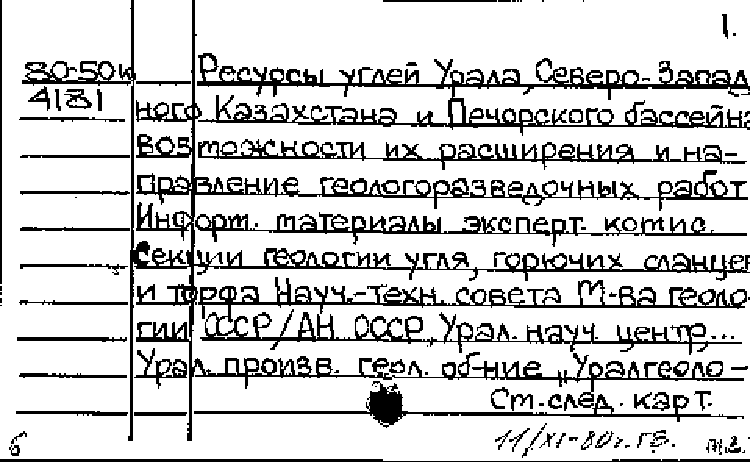 1.
80-50к Ресурсы углей Урала, Северо-Запад
4181 ного Казахстана и Печорского бассейна
возможности их расширения и на-
правление геологоразведочных работ
Информ. материалы эксперт. комис.
Секции геологии угля, горючих сланцев
и торфа Науч.-техн. совета М-ва геоло-
гии СССР/АН СССР, Урал. науч. центр...
Урал. произв. геол. об-ние „Уралгеоло-
См. след. карт.
б 11/XI-80г. ГБ.